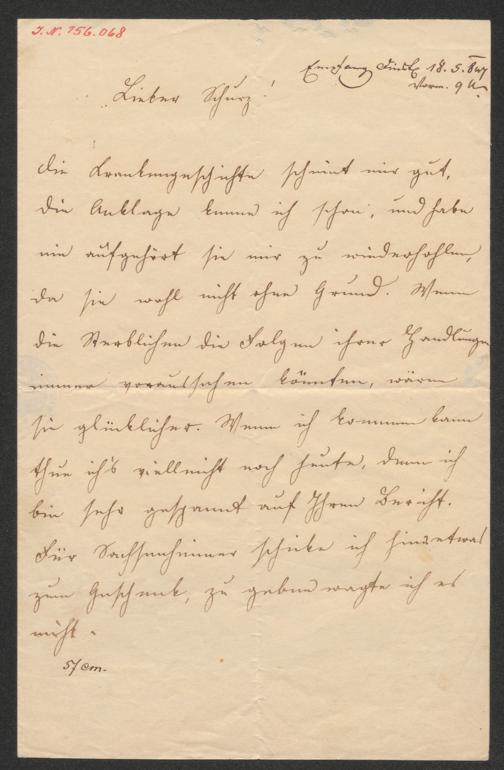 I.N. 156.068
Empfang 18. 5. 847
Vorm. 9 U.
Lieber Schurz!
die Krankengeschichte scheint mir gut,
die Anklage kenne ich schon, und habe
nie aufgehört sie mir zu wiederhohlen,
da sie wohl nicht ohne Grund. Wenn
die Sterblichen die Folgen ihrer Handlungen
immer voraussehen könnten, wären
sie glücklicher. Wenn ich kommen kann
thue ich's vielleicht noch heute, denn ich
bin sehr gespannt auf Ihren Bericht.
Für Sachsenheimer schicke ich hier etwas
zum Geschenk, zu geben wagte ich es
nicht.